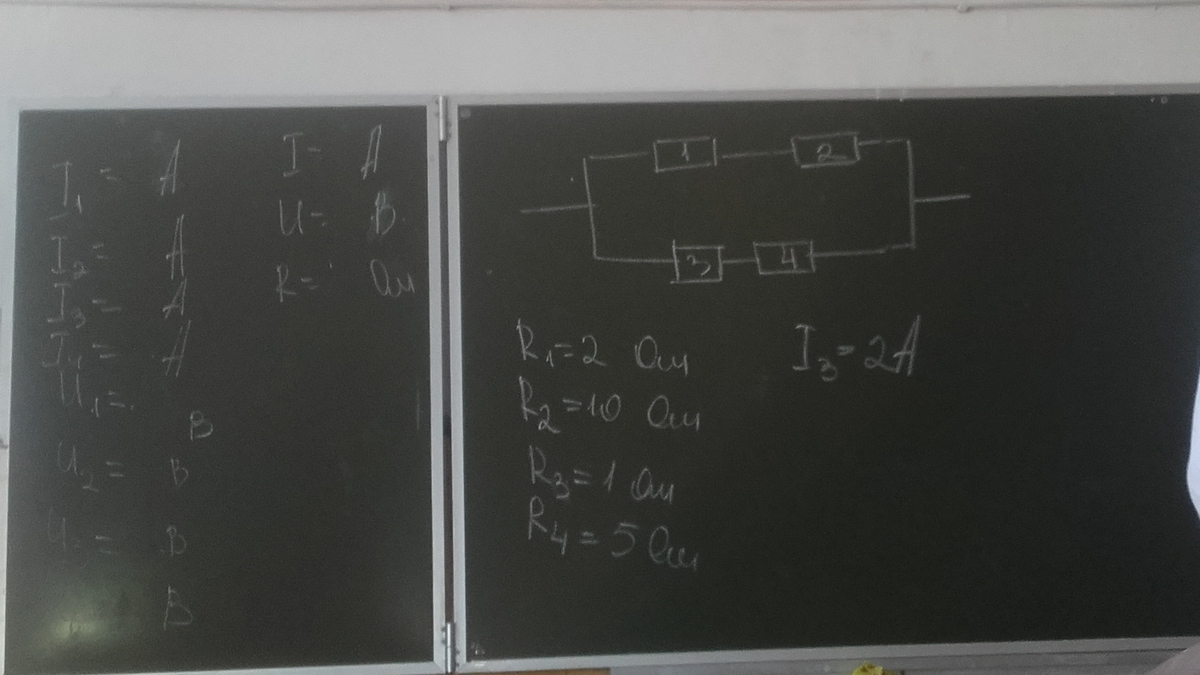 I₁ = А
I₂ = А
I₃ = А
I₄ = А
U₁ =
В
U₂ = В
U = В
В
I = А
U = В
R = Ом
1
2
3
4
R₁ = 2 Ом
R₂ = 10 Ом
R₃ = 1 Ом
R₄ = 5 Ом
I₃ = 2А